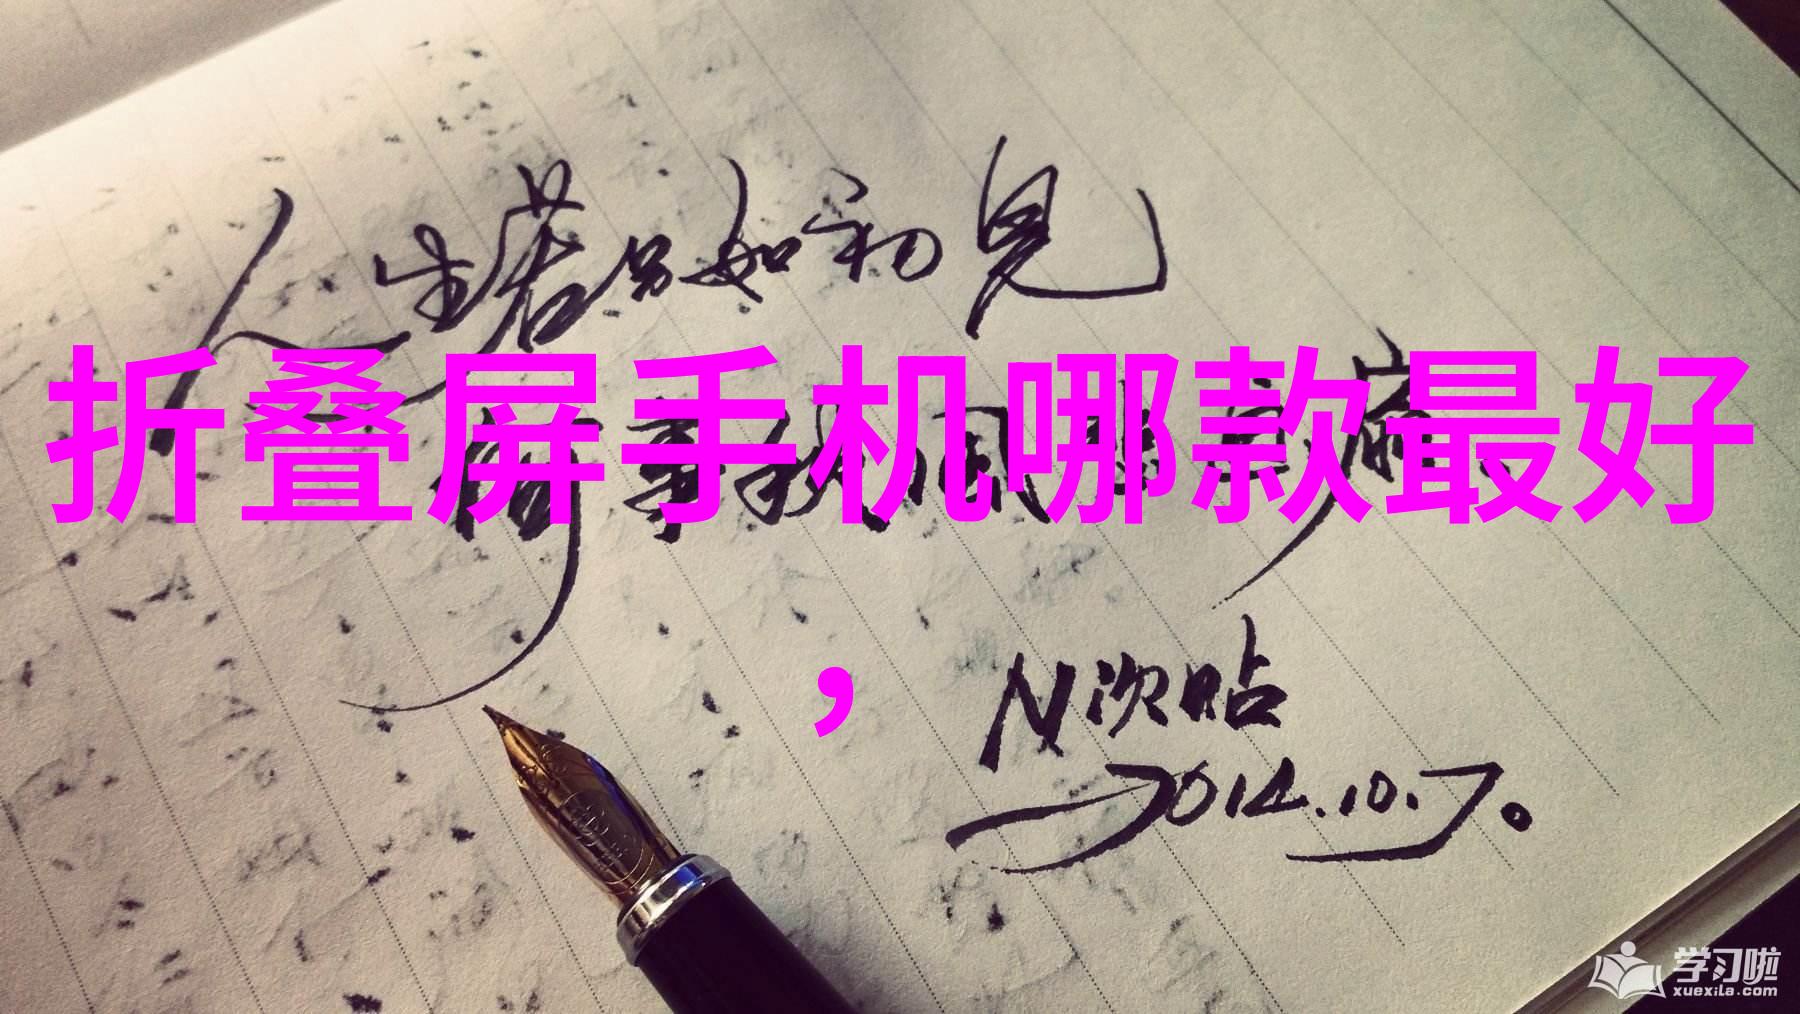 人生若只如初见
折叠屏手机哪款最好
何事秋风悲画扇
，
N次贴
2014.10.7。
学习啦
xuexila.com